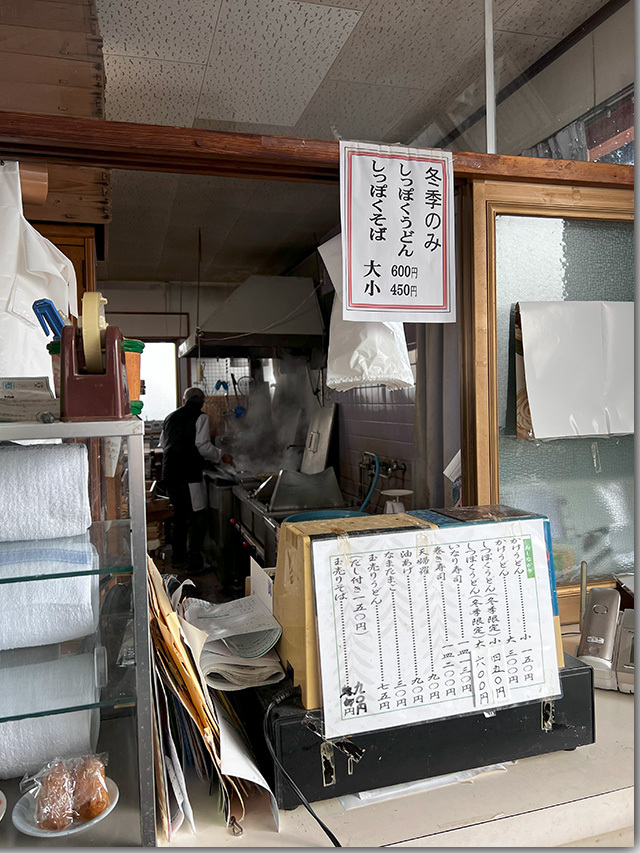 冬季のみ
しっぽくうどん
しっぽくそば
大 600円
小 450円
めにゅー
かけうどん 小 一五〇
かけうどん 大 三〇〇
しっぽくうどん(冬季限定) 小 四五〇
しっぽくうどん(冬季限定) 大 六〇〇
いなり寿司 一四三〇
巻き寿司 一四二〇
天婦羅 九〇
油あげ 九〇
なまたまご 三〇
玉売りうどん 七五円
(だし付き一五〇円)
玉売りそば 九〇円